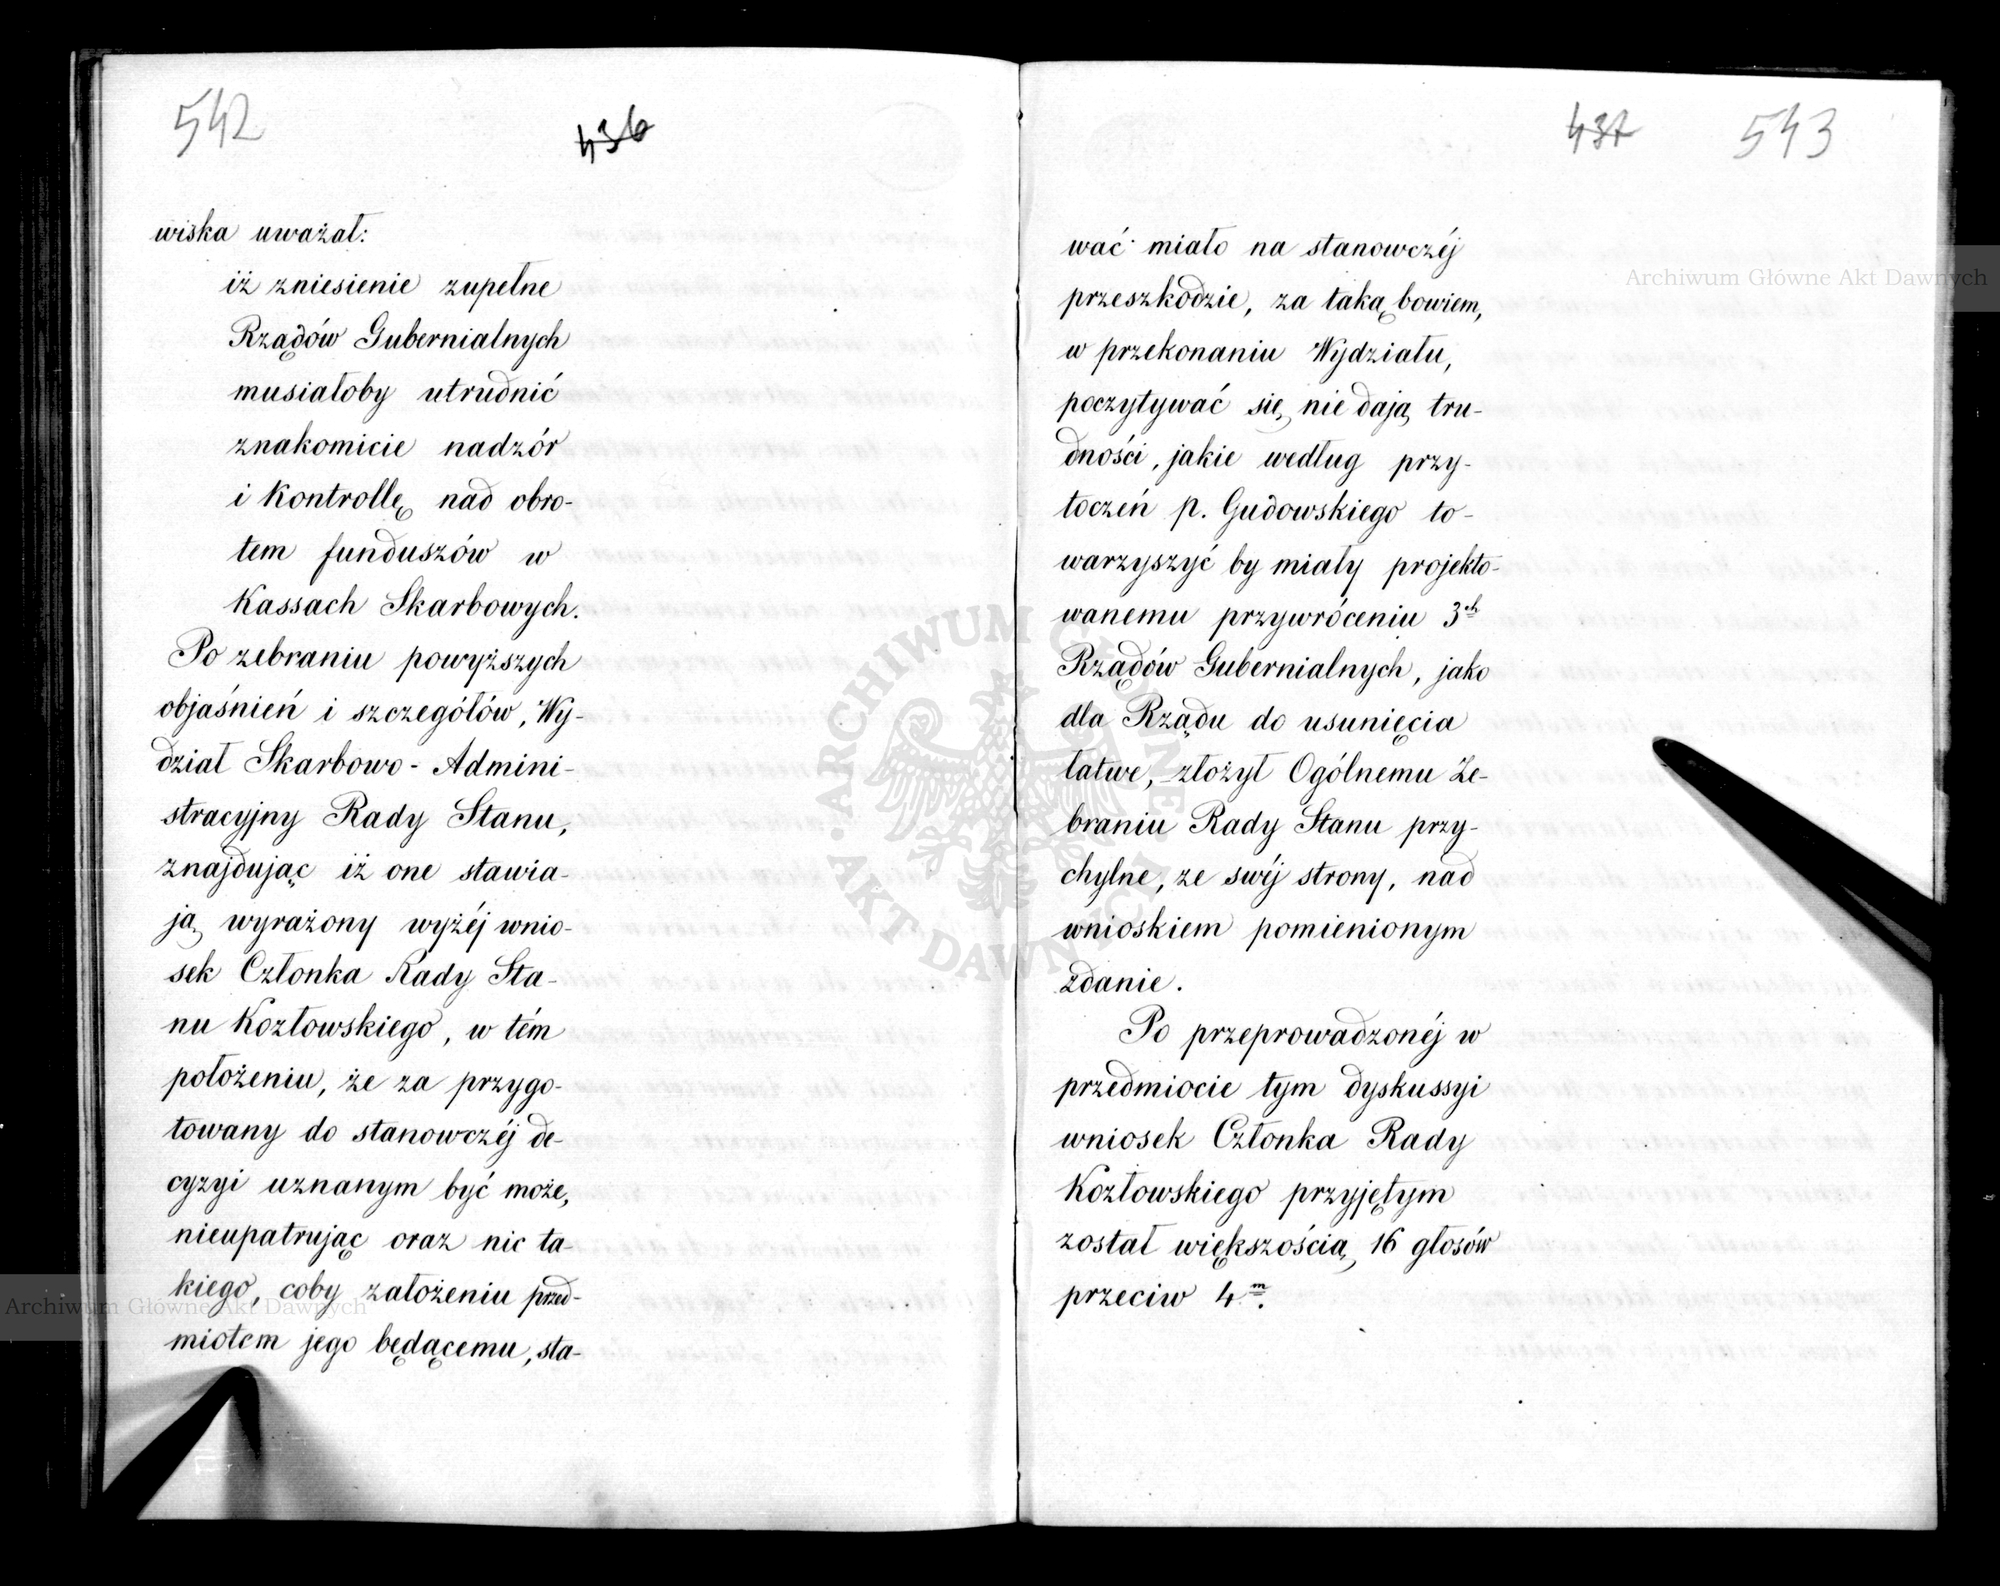 542
436
wiska uważał:
iż zniesienie zupełne
Rządów Gubernialnych
musiałoby utrudnić
znakomicie nadzór
i Kontrollę nad obro-
tem funduszów w
Kassach Skarbowych.
Po zebraniu powyższych
objaśnień i szczegółów, Wy-
dział Skarbowo-Admini-
stracyjny Rady Stanu,
znajdując iż one stawia-
ją wyrażony wyżéj wnio-
sek Członka Rady Sta-
nu Kozłowskiego, w tém
położeniu, że za przygo-
towany do stanowczéj de-
cyzyi uznanym być może,
nieupatrując oraz nic ta-
kiego, coby założeniu przed-
miotem jego będącemu, sta-
437
543
wać miało na stanowczéj
przeszkodzie, za taką bowiem,
w przekonaniu Wydziału,
poczytywać się nie dają tru-
dności, jakie według przy-
toczeń p. Gudowskiego to-
warzyszyć by miały projekto-
wanemu przywróceniu 3ch
Rządów Gubernialnych, jako
dla Rządu do usunięcia
łatwe, złożył Ogólnemu Ze-
braniu Rady Stanu przy-
chylne, ze swéj strony, nad
wnioskiem pomienionym
zdanie.
Po przeprowadzonéj w
przedmiocie tym dyskussyi
wniosek Członka Rady
Kozłowskiego przyjętym
został większością 16 głosów
przeciw 4m.
Archiwum Główne Akt Dawnych
Archiwum Główne Akt Dawnych
ARCHIWUM GŁÓWNE AKT DAWNYCH